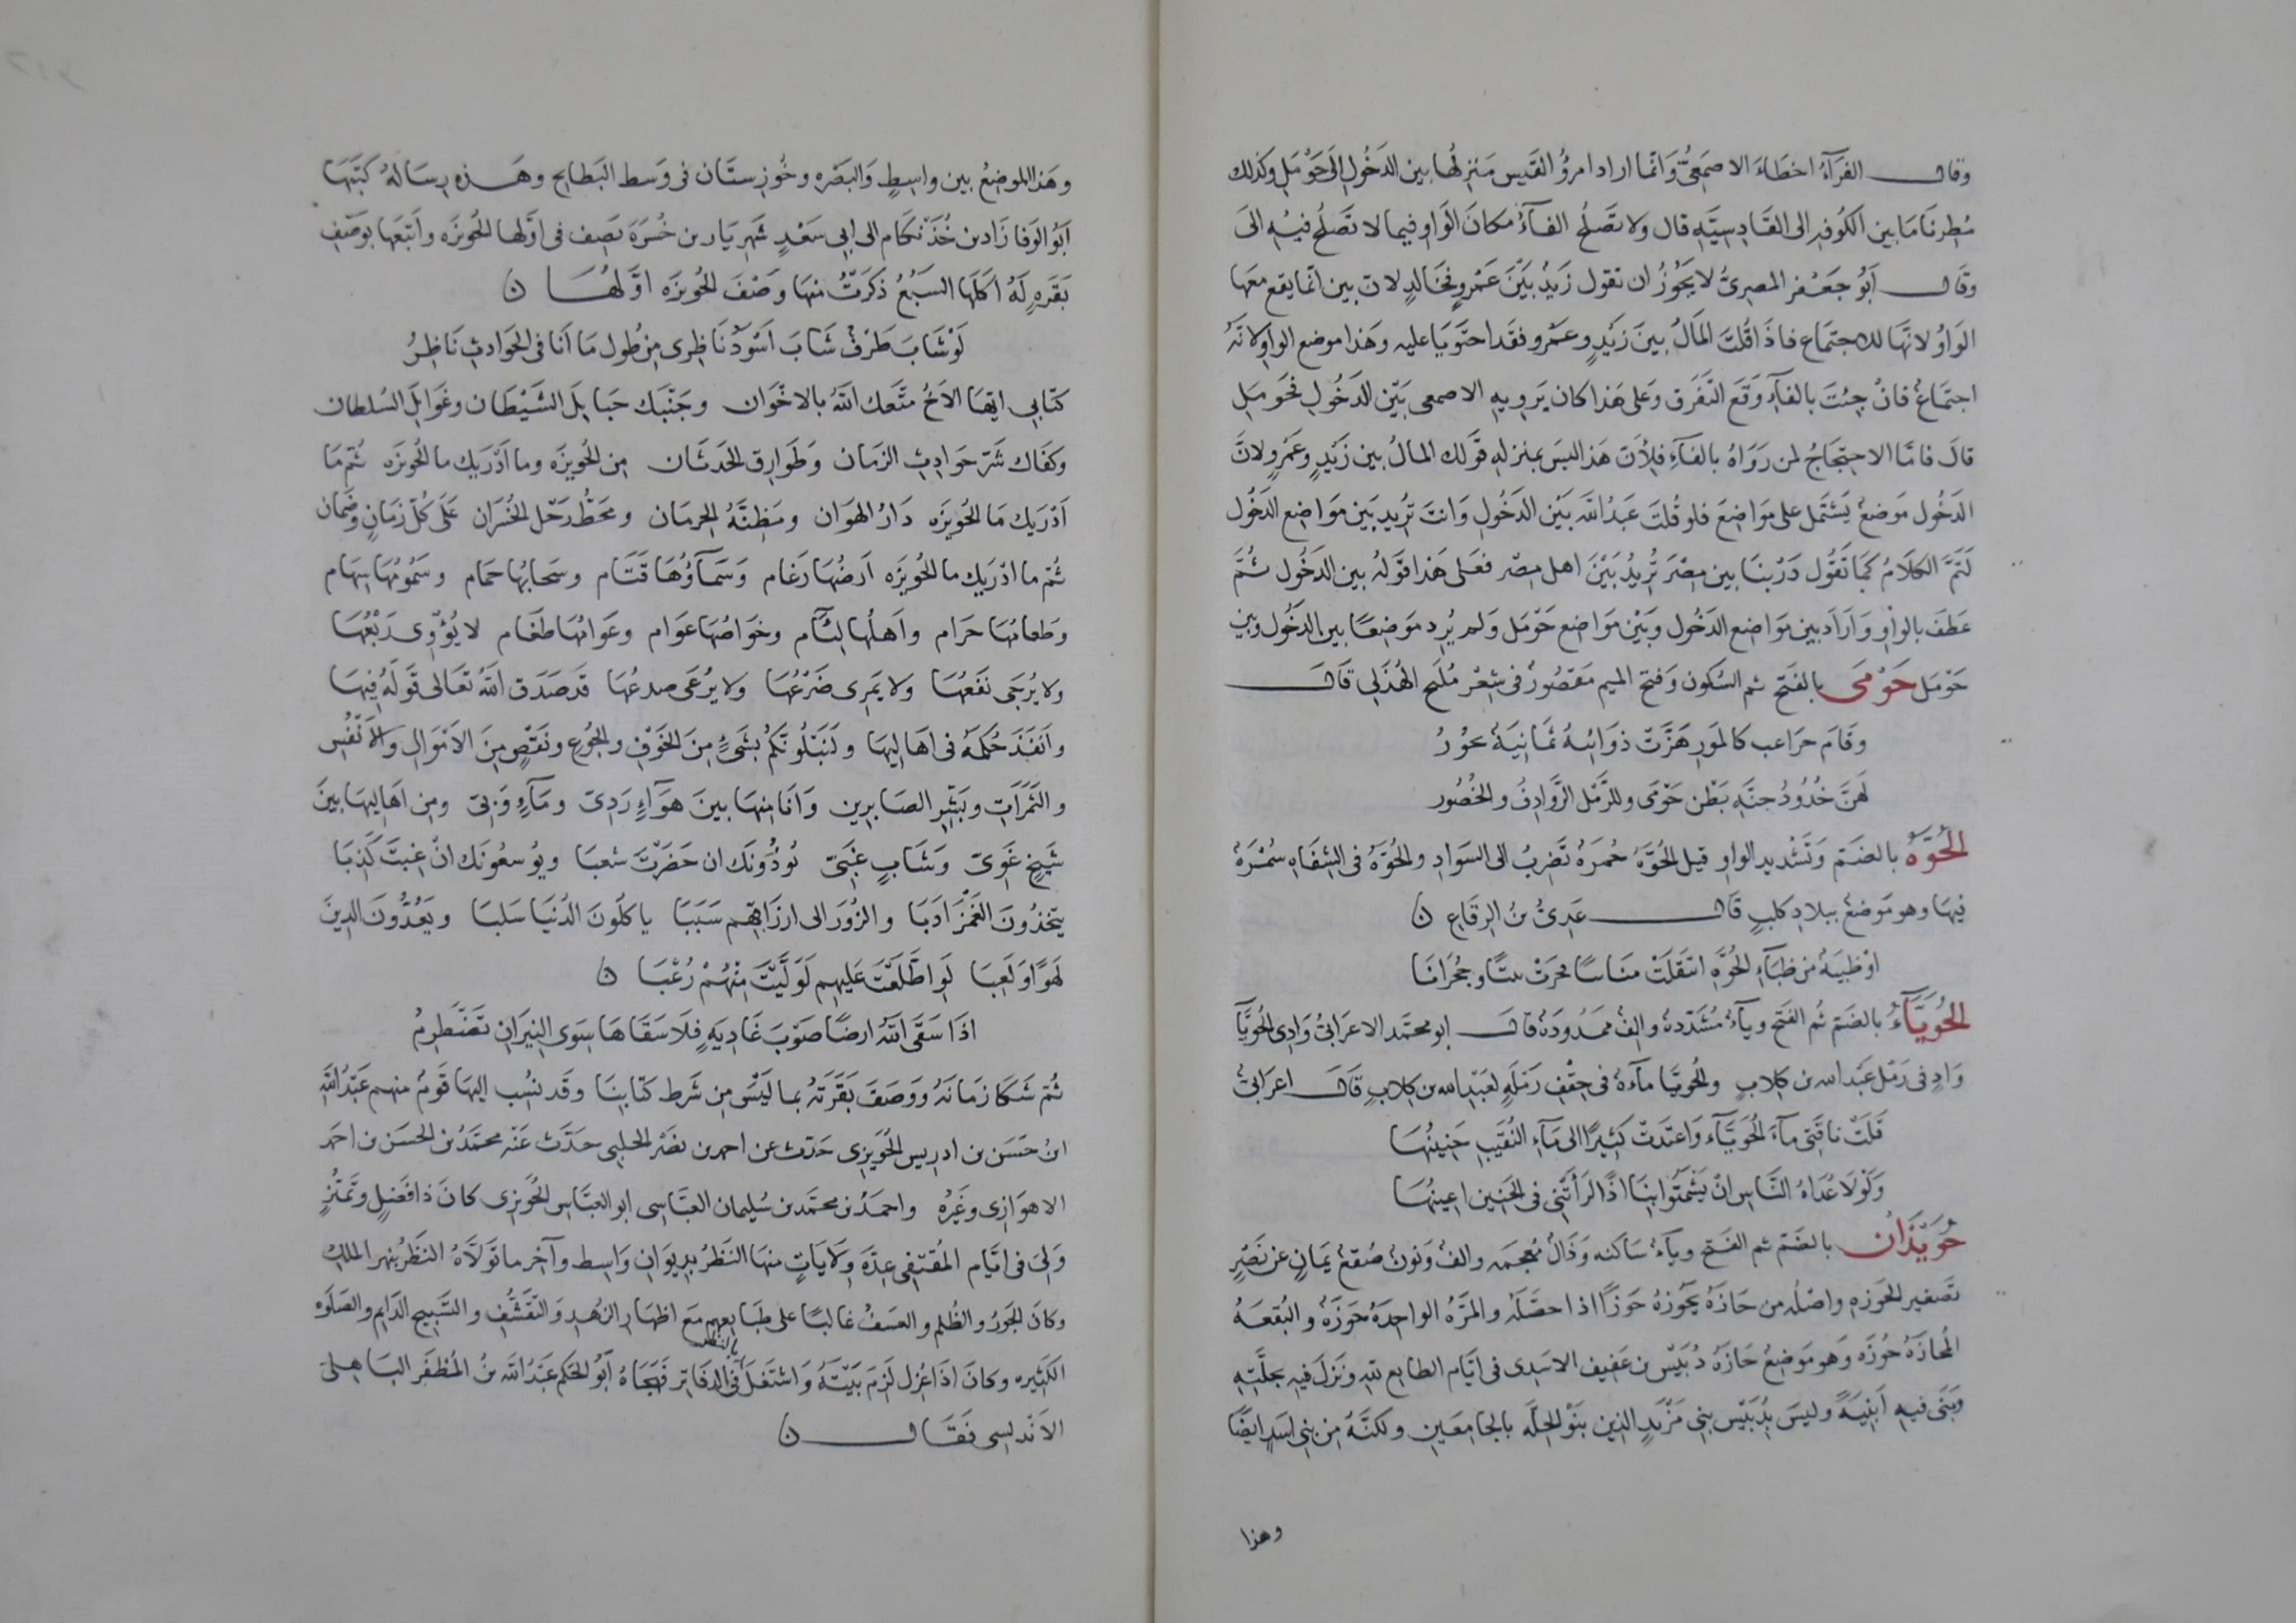 وقال الفرّآءُ اخطاءَ الاصمعىُّ وَانمّا اراد امرؤُ القَيس مَنزلُها بين الدَخُول الىَ حَوْمَلِ وكذلك
مُطِرنَا مَا بين الكُوفه الى القَادِسيَّه قال ولا تصَلحُ الفآءُ مكانَ الوَاو فيما لا تَصَلحُ فيهِ الىَ
وقَال أبَوُ جَعْفر المصرىُّ لا يجَوُزُ ان تقول زَيدُ بَيْنَ عَمْروٍ فخَالدٍ لان بين انّما يقع معَها
الوَاوُ لانهَّا للاجتماَع فاذَا قُلتَ المَالُ بينَ زَيْدٍ وعَمْرو فقَد احتَويَا عليه وهَذا موضع الواو لانّهُ
اجتماَعُ فانْ جئتَ بالفآءِ وَقَع التّفَرق وَعلى هَذا كان يَرويهِ الاصمعى بَيْن الدَخُولِ فحَومَلِ
قالَ فامّا الاحتجَاجُ لمن رَوَاهُ بالفآءِ فلأنَ هَذا ليسَ بمنزلهِ قَولك المالُ بين زَيْدٍ وعَمْرٍو لانَّ
الدَخُول مَوضعُ يَشتمل على موَاضعَ فلو قُلتَ عَبدُ الله بَيْن الدَخُولِ وَانتَ تُريد بَين موَاضع الدَخُول
لَتمَّ الكلَامُ كمَا تَقُول دَرْبنَا بين مِصْرَ تُريدُ بَيْنَ اهل مِصْر فعَلى هَذا قَولهُ بين الدَخُول ثُمَّ
عطَفَ بالوَاو وَارَادَ بين موَاضع الدَخُول وَبَيْن موَاضع حَوْمَل وَلم يُرد مَوضعًا بين الدَخُول وبين
حَوْمَل حَوْمَى بالفَتح ثم السُكون وَفتح الميم مَقصُورٌ فى شِعْر مُلَيح الهُذَلى قَالَ
وقَامَ خرَاعب كالمَورِ هَزّت ذوَائبهُ ثمَانيَةُ حوُرُ
لهَنَّ خُدُودُ جنَّهِ بَطْن حَوْمَى وللرَّمْل الرَّوادِفُ والخُصُور
الحُوَّهُ بالضَم وَتَشْديد الواو قيل الحُوَّهُ حُمرَهُ تَضربُ الى السَوادِ والحُوَّهُ فى الشِفَاهِ سُمْرَهُ
فيهَا وهو مَوضعُ ببلادِ كلبٍ قَالَ عَدِىُّ بنُ الرقاعِ ن
اوْ ظبيَةُ من ظبَآءِ الحُوّهِ انتقلَتْ منَاسًا فجرَتْ نبتًا وجُحْرَانَا
الحُوَيَّآءُ بالضم ثُم الفَتح ويآءُ مُشدّدهُ والفُ ممَدُودَهُ قالَ ابو محمّد الاعرَابىُّ وَادِى الحُوَيَّا
وَادٍ فى رَمْل عَبد الله بن كِلابٍ والحُويَّا مآءهُ فى حِقْفِ رَمْلَهٍ لعَبْدِ الله بن كِلابٍ قَالَ اعرَابىُّ
قَلَتْ ناقَتى مآءَ الحُوَيَّآءِ وَاعتَدَتْ كثيرًا الى مَآءِ النُقَيبِ حَنينُهَا
وَلَوْلَا عُدَاهُ النَّاس انْ يَشمَتُوا بنَا اذًا لرَأتْنى فى الحَنين اعينُهَا
حُوَيْذَان بالضَم ثم الفَتح ويآءُ سَاكنه وَذَالُ مُعجمه والفُ وَنونُ صُقعُ يَمانٍ عن نَصْرٍ
تَصغير الحَوزه واصْلُه من حَازَهُ يحَوُزهُ حَوزًا اذا حصّلَهُ والمَرّهُ الواحدَهُ حَوْزَهُ والبُقعَهُ
المُحازَهُ حُوزَه وهو مَوضِعُ حَازَهُ دُبَيْسُ بن عَفيف الاسَدِى فى ايّام الطايع للهِ ونَزلَ فيهِ بحلّتِهِ
وَبَنَى فيهِ أبنِيَهً وليسَ بدُبَيْسِ بنى مَزْيَدٍ الذين بَنَوْ الحِلّه بالجَامعَينِ ولكنّهُ من بنى اسَدٍ ايضًا
وهذا
وهَذا الموضعُ بين واسِطٍ وَالبَصْره وخُوزسِتَان فى وَسط البَطايح وهَذه رسَالهُ كَتَبَهَا
ابَوُ الوَفا زَاد بن خُذنكَام الى ابى سَعْدٍ شَهريَار بن خُسْرَه يَصف فى اوّلها الحُويزَه وَاتبَعَها بوَصْفِ
بَقَرهٍ لَهُ اكَلَها السَبُعُ ذكَرتُ منهَا وصْفَ الحُويزَه اوّلُهَا ن
لَوْ شَابَ طَرْفُ شَابَ اسْوَدُ نَاظِرى مِن طُول مَا أنَا فى الحَوَادثِ نَاظِرُ
كتَابى ايّهَا الاخُ متّعكَ اللهُ بالاخْوَان وجَنّبَكَ حَبايلَ الشَيْطَان وغَوَايلَ السُلطان
وكَفَاكَ شَرّ حوَادِثِ الزمَان وطَوارِق الحَدثَان مِن الحُويزَه وما ادْرَيكَ ما الحُويزَه ثمُّ مَا
ادْرَيكَ مَا الحُويزَه دَارُ الهوَان ومَظِنّهُ الحِرمَان ومحَطُّ رَحْل الخُسْرَان عَلَى كُلّ زمَانٍ وضَمان
ثُمّ ما ادْرَيكَ ما الحُويزَه ارضُهَا رَغَام وَسَمآؤُهَا قَتَام وسَحابُها حمَام وسَمُومُهَا سِهَام
وطعامُهَا حَرَام واهلُها لئآم وخوَاصُهَا عَوام وعَوامُّهَا طَغام لا يُؤْوِى رَبْعُهَا
ولا يُرجَى نَفعُهَا ولا يَمرِى ضَرْعُهَا ولا يُرْعَى صدعُهَا قَد صَدَق اللهُ تعَالى قَولَهُ فيهَا
وانفَذَ حُكمَهُ فى اهَاليهَا ولَنَبْلُونّكم بشَىءٍ مِنَ الخَوْفِ والجُوع ونَقْصٍ مِنَ الامْوَالِ والأنْفُسِ
والثَمَرَاتِ وبَشّر الصَابرين وَانَا منهَا بينَ هوَآءٍ رَدِىّ ومَآءٍ وَبىّ ومِن اهَاليهَا بينَ
شَيخٍ غَوىّ وَشَابٍ غَبىّ يُؤذُونَكَ ان حَضَرْتَ شعبا ويُوسعُونَك انْ غبتَ كَذِبَا
يتّخذُونَ الغَمْزَ ادَبَا والزُورَ الى ارزَاقِهم سَبَبَا ياكلُونَ الدُنيَا سَلبَا ويَعُدُّونَ الدِينَ
لهَوًا ولَعِبَا لَوِ اطّلَعْتَ عَليهِم لَوَلّيْتَ مِنْهُمْ رُعْبَا ن
اذَا سَقَى اللهُ ارضًا صَوْبَ غَادِيَهٍ فلَا سَقَاهَا سِوَى النِيرَانِ تَضْطَرِمُ
ثُمّ شَكَا زمَانَهُ وَوَصَفَ بَقَرَتَهُ بما لَيْسَ مِن شَرط كتَابنَا وقَد نسُب اليهَا قَومُ منهم عَبْدُ اللهِ
ابنُ حَسَن بن ادريس الحُوَيزى حَدّث عن احمد بن نصْر الحلبى حَدّثَ عَنْه محمّدُ بن الحسَن بن احمَد
الاهوَازى وغَيْرُه واحمدُ بن محمّد بن سُليمان العبّاسى ابو العبّاس الحُوَيزى كانَ ذا فَضلٍ وتَميّزٍ
وَلىَ فى ايّام المُقتفى عِدّهَ وِلَايَاتٍ منهَا النَظَرُ بديوَانِ وَاسِط وآخر ما تَولَّاهُ النَظَرُ بنهر الملكِ
وكانَ الجَورُ والظُلم والعسَفُ غالبًا على طبَايعهم مَع اظهَارِ الزُهدِ وَالتَقشُّفِ والتَسْبيح الدَايم والصَلَوه
الكثيره وكانَ اذَا عُزل لَزمَ بَيْتَهُ وَاشتَغلَ بالنظر فى الدفَاتر فهَجَاهُ ابَوُ الحَكم عَبْدُ الله بنُ المُظفّر البَاهلى
الانَدلسى فَقَالَ ن